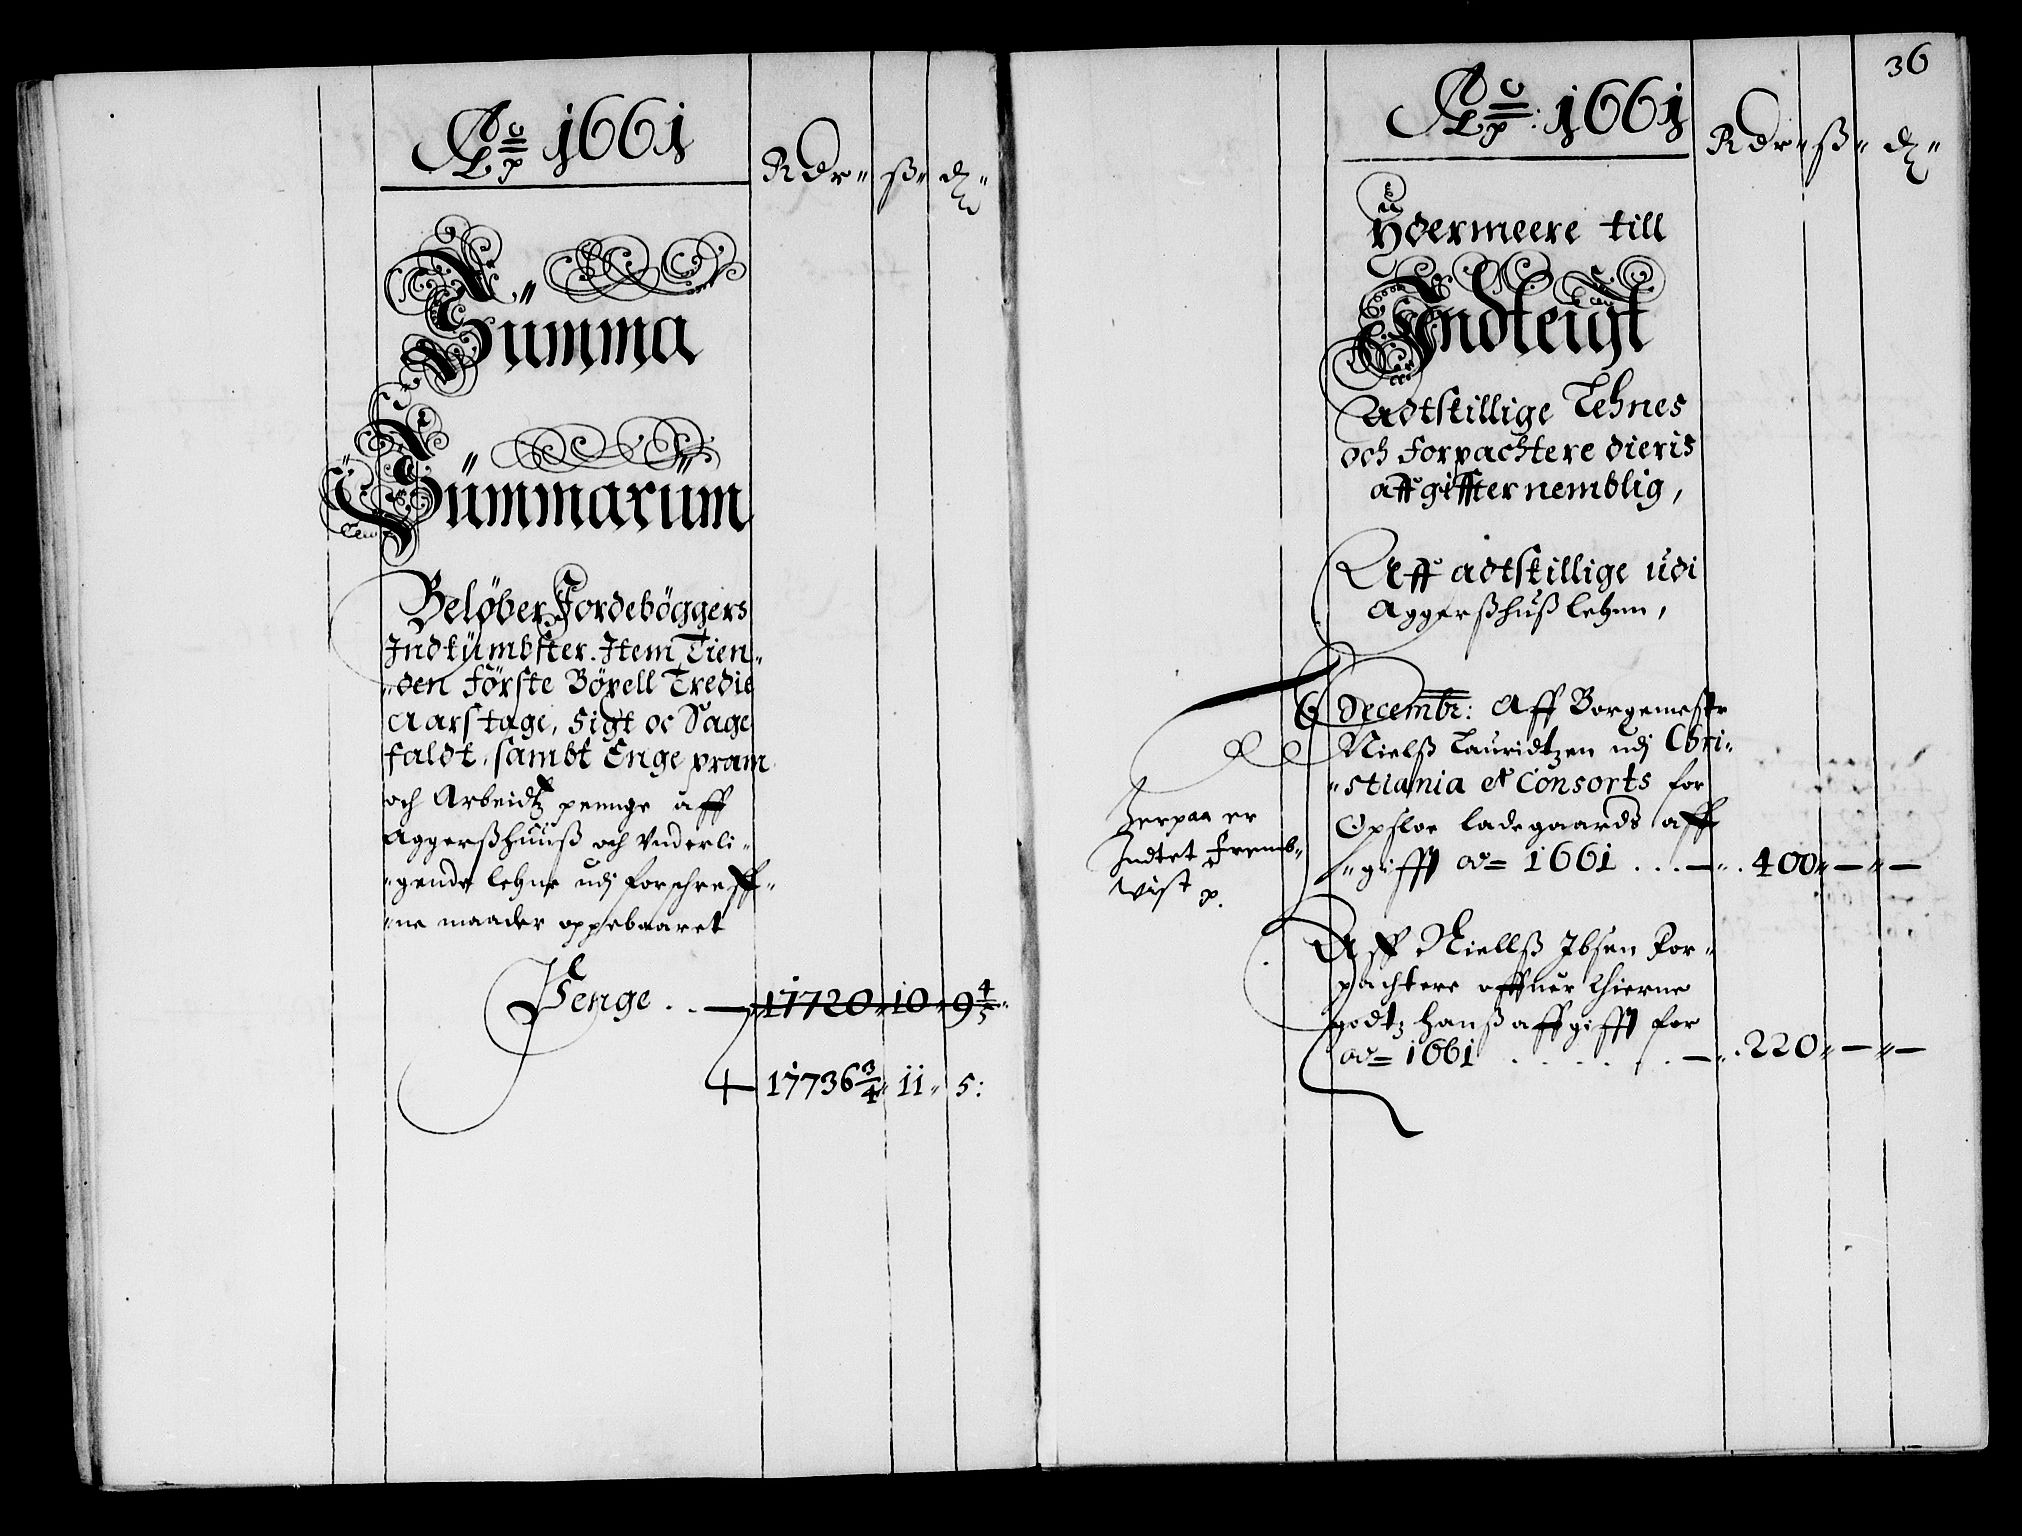 Ao 1661
Rdr ß d
Summa
Summarum
Beløber Jordebøggers
Indkumbster. Item Tien-
den Første Bøxell Tredie
Aarstage, Sigt oc Sage
faldt, sambt Enge pram
och Arbeidtz penge aff
Aggerßhuuß och Underli-
gende lehne udj forschreff-
ne maader oppebaaret
Penge . . — 17720 10 9 4/5
17736 3/4 11 5
36
Ao: 1661
Rdr ß d
Ydermeere till
Indteigt
Adtskillige Lehnes
och Forpachtere dieris
affgiffter nemblig,
Aff adtskillige udi
Aggerßhuß lehen,
6 Decembr: Aff Borgemester
Nielß Lauridtzen udj Chri-
stiania et Consorts for
Opsloe ladegaards aff
gifft Ao 1661 . . . — 400 — —
Herpaa er
Indtet Fremb-
vist
Aff Niellß Ibsen For-
pachtere offuer Thierne
godtz hanß affgifft for
Ao 1661 . . . . . . — 220 — —